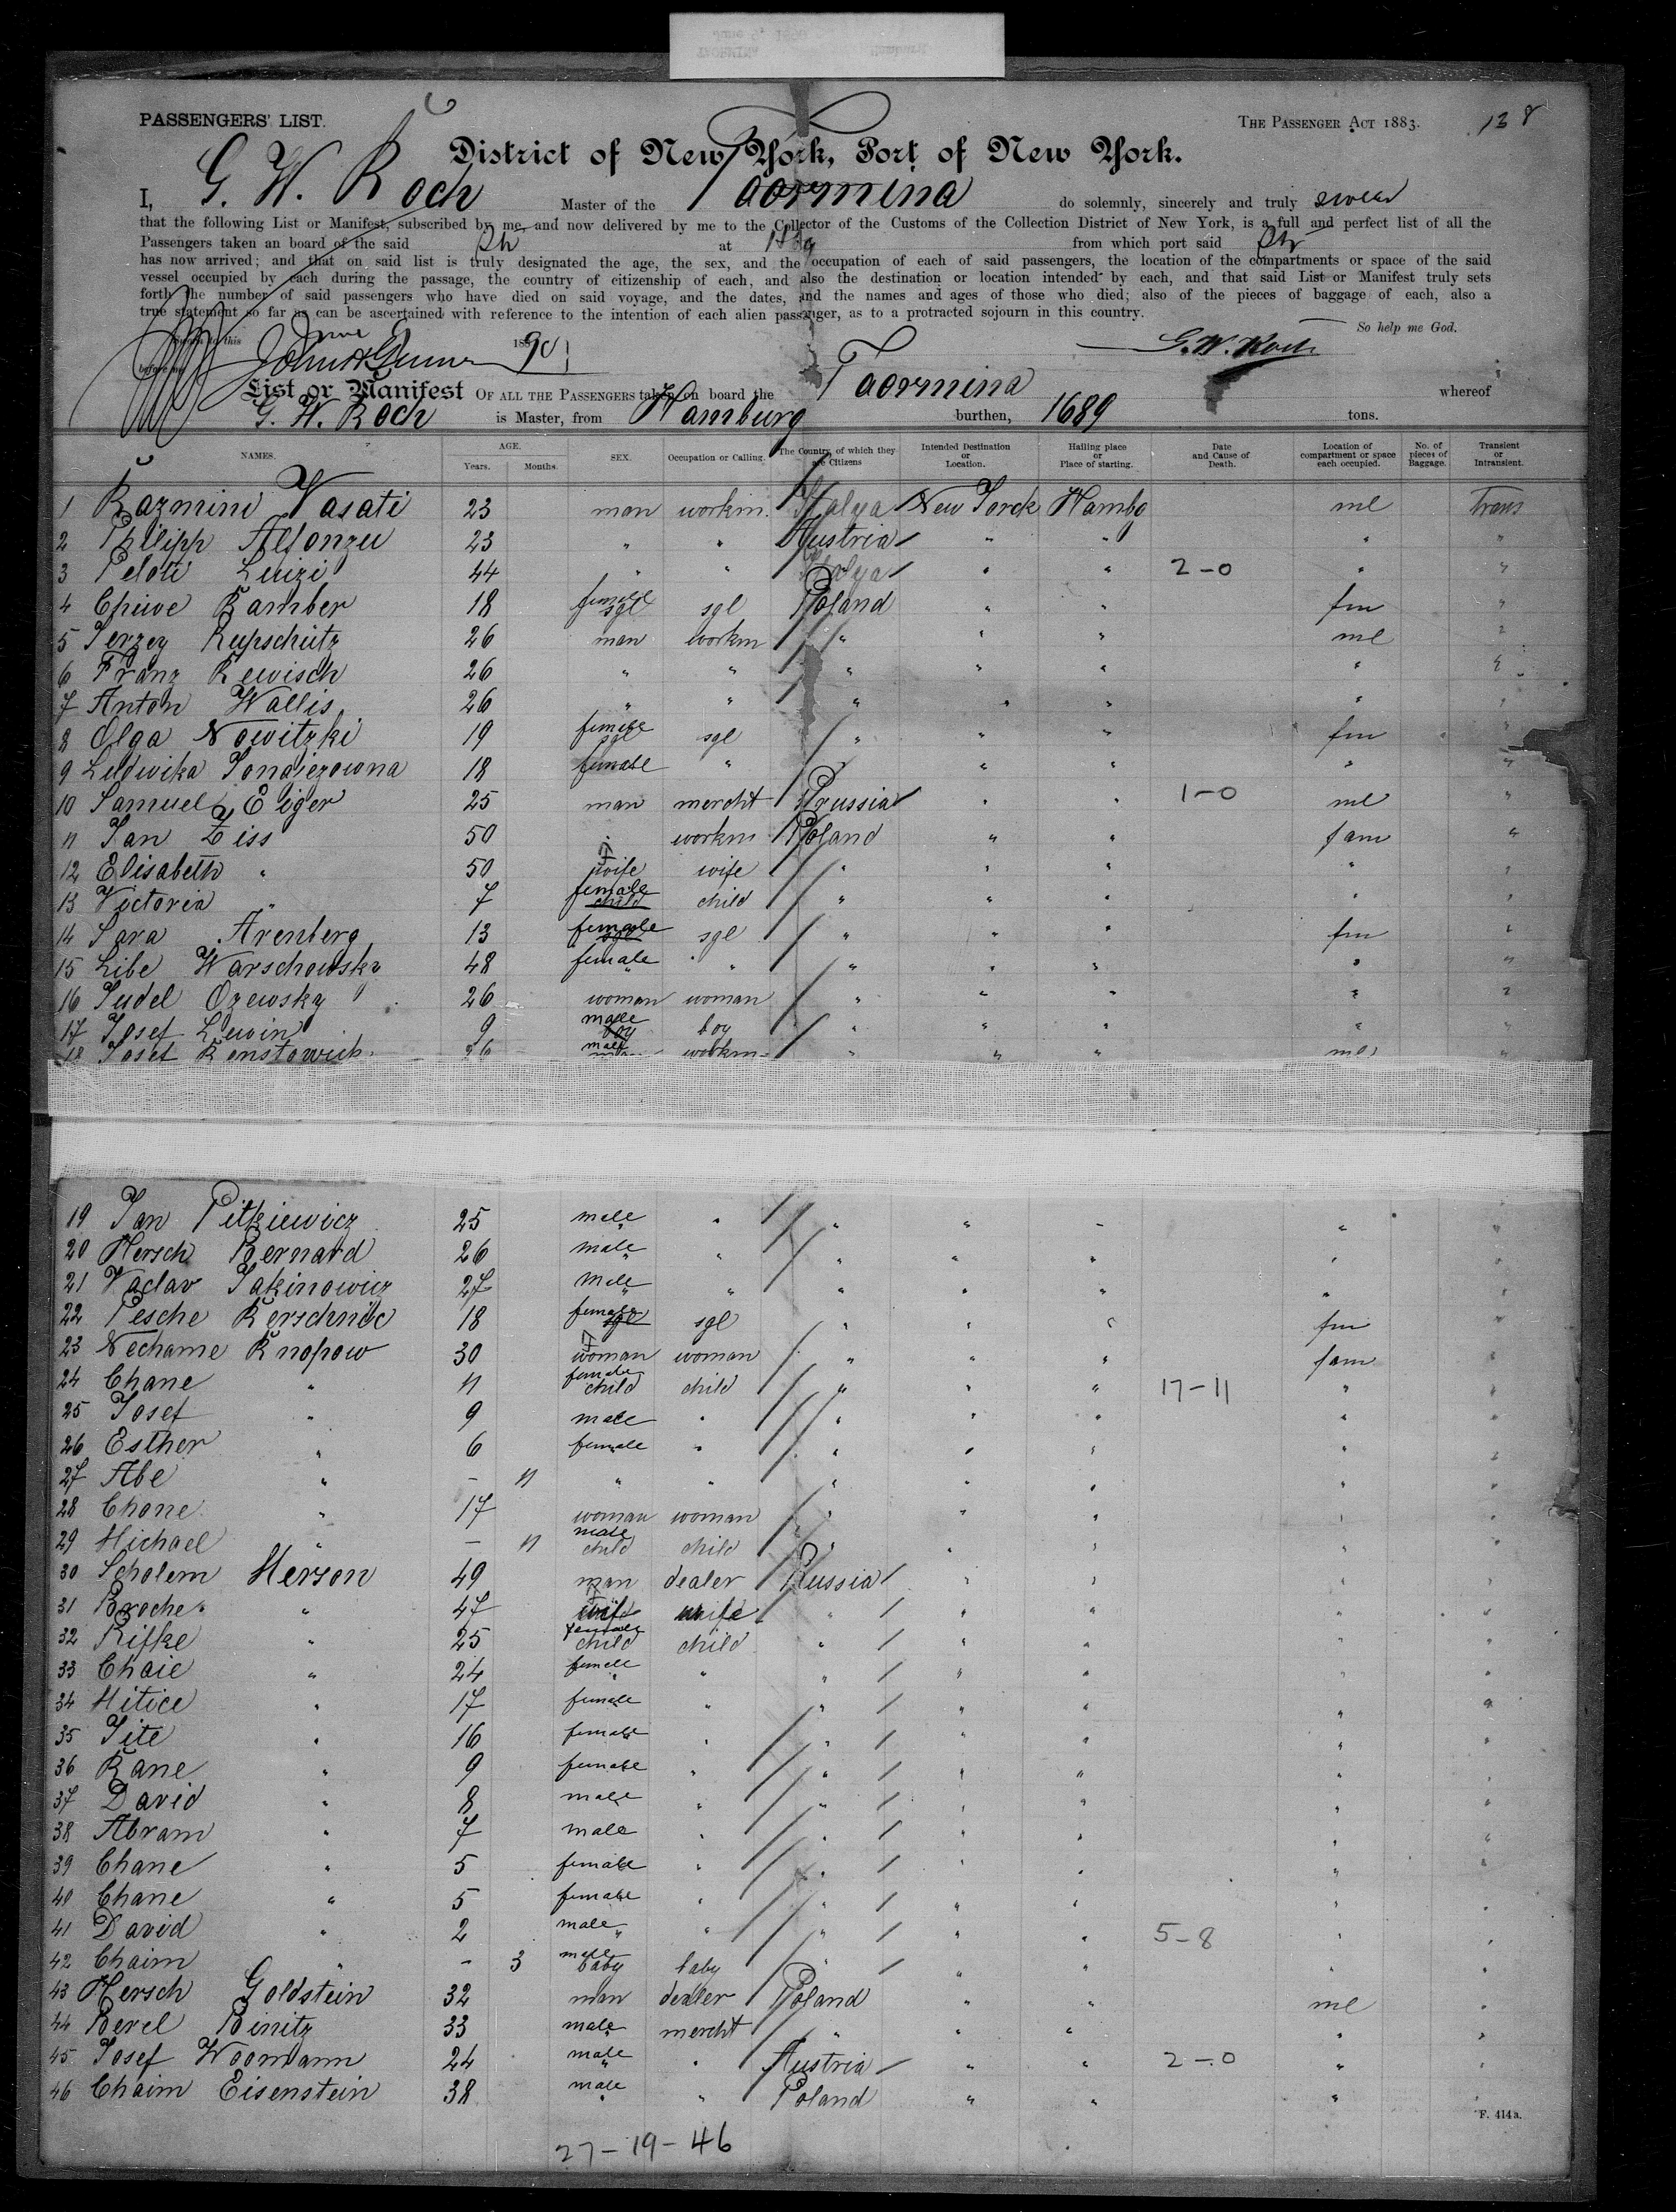 PASSENGERS' LIST.
THE PASSENGER ACT 1883.
138
District of New York, Port of New York.
I, G. W. Koch Master of the Taormina do solemnly, sincerely and truly swear
that the following List or Manifest, subscribed by me, and now delivered by me to the Collector of the Customs of the Collection District of New York, is a full and perfect list of all the
Passengers taken on board of the said Sh at Hbg from which port said Sh
has now arrived; and that on said list is truly designated the age, the sex, and the occupation of each of said passengers, the location of the compartments or space of the said
vessel occupied by each during the passage, the country of citizenship of each, and also the destination or location intended by each, and that said List or Manifest truly sets
forth the number of said passengers who have died on said voyage, and the dates, and the names and ages of those who died; also of the pieces of baggage of each, also a
true statement so far as can be ascertained with reference to the intention of each alien passenger, as to a protracted sojourn in this country.
So help me God.
to this June 1890
G. W. Koch
List or Manifest OF ALL THE PASSENGERS taken on board the Taormina whereof
G. W. Koch is Master, from Hamburg burthen, 1689 tons.
NAMES. AGE. Years. Months. SEX. Occupation or Calling. The Country of which they are Citizens Intended Destination or Location. Hailing place or Place of starting. Date and Cause of Death. Location of compartment or space each occupied. No. of pieces of Baggage. Transient or Intransient.
1 Kazmini Vasati 23 man workm. Italya New Yorck Hambg ml Trans
2 Philipp Alfonzu 23 " " Austria " " " "
3 Peloti Luizi 44 " " Italya " " 2-0 " "
4 Chiwe Kamber 18 female sgl sgl Poland " " fm "
5 Jerzey Kupschutz 26 man workm " " " ml "
6 Franz Kewisch 26 " " " " " " "
7 Anton Wallis 26 " " " " " " "
8 Olga Nowitzki 19 female sgl sgl " " " fm "
9 Ludwika Jonaiezowna 18 female " " " " " "
10 Samuel Eiger 25 man mercht Prussia " " 1-0 ml "
11 Jan Ziss 50 " workm Poland " " fam "
12 Elisabeth " 50 wife wife " " " " "
13 Victoria " 7 female child child " " " " "
14 Sara Arenberg 13 female sgl sgl " " " fm "
15 Libe Warschowsky 48 female " " " " " "
16 Judel Ozewsky 26 woman woman " " " " "
17 Josef Lewin 9 male boy boy " " " " "
18 Josef Konstowich 26 male man workm " " " ml "
19 Jan Pitkiewicz 25 male " " " " " "
20 Hersch Bernard 26 male " " " " " "
21 Vaclav Jakinowicz 27 male " " " " " "
22 Pesche Kerschnic 18 female sgl sgl " " " fm "
23 Nechame Knopow 30 woman woman " " " fam "
24 Chane " 11 female child child " " " 17-11 " "
25 Josef " 9 male " " " " " "
26 Esther " 6 female " " " " " "
27 Abe " - 11 " " " " " " "
28 Chone " 17 woman woman " " " " "
29 Michael " - 11 male child child " " " " "
30 Scholem Herson 49 man dealer Russia " " " "
31 Broche " 47 wife wife " " " " "
32 Rifke " 25 female child child " " " " "
33 Chaie " 24 female " " " " " "
34 Mitice " 17 female " " " " " "
35 Jite " 16 female " " " " " "
36 Kane " 9 female " " " " " "
37 David " 8 male " " " " " "
38 Abram " 7 male " " " " " "
39 Chane " 5 female " " " " " "
40 Chane " 5 female " " " " " "
41 David " 2 male " " " " 5-8 " "
42 Chaim " - 3 male baby baby " " " " "
43 Hersch Goldstein 32 man dealer Poland " " ml "
44 Berel Binitz 33 male mercht " " " " "
45 Josef Woomann 24 male " Austria " " 2-0 " "
46 Chaim Eisenstein 38 male " Poland " " " "
F. 414a.
27-19-46